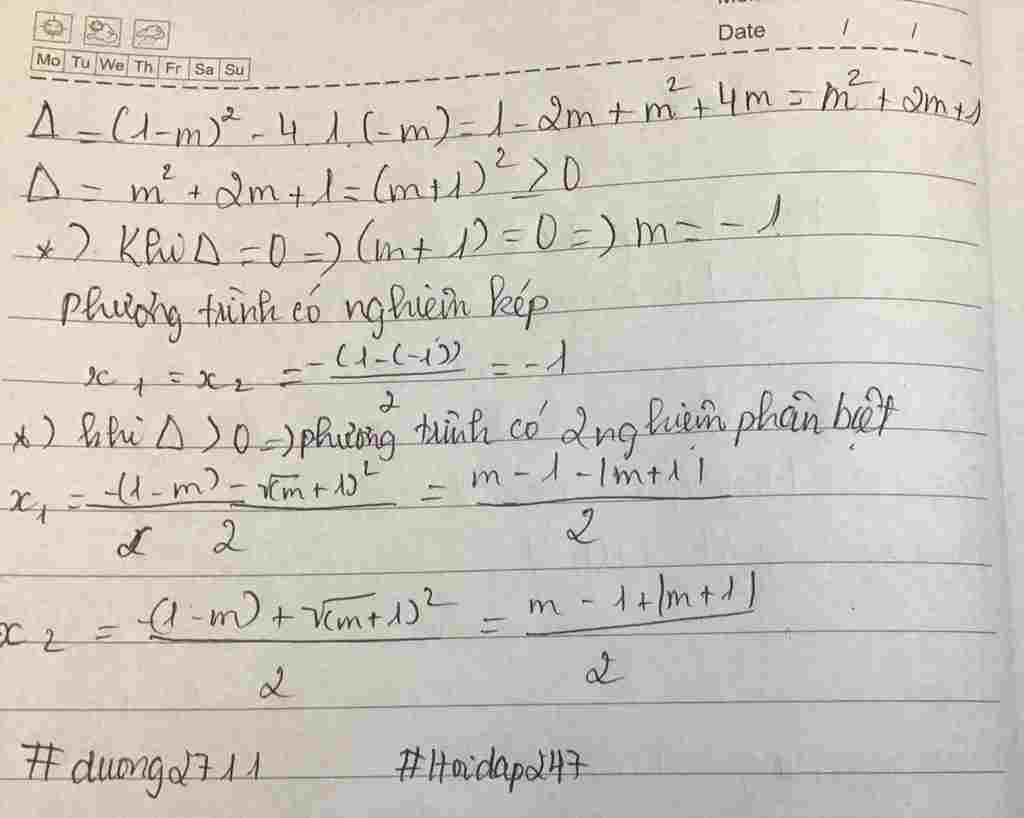 Date / /
Mo Tu We Th Fr Sa Su
Δ = (1-m)² - 4.1.(-m) = 1 - 2m + m² + 4m = m² + 2m+1
Δ = m² + 2m + 1 = (m+1)² > 0
*) Khi Δ = 0 => (m+1) = 0 => m = -1
phương trình có nghiệm kép
x₁ = x₂ = -(1-(-1))/2 = -1
*) khi Δ > 0 => phương trình có 2 nghiệm phân biệt
x₁ = -(1-m) - √(m+1)²/2 = m - 1 - |m+1|/2
x₂ = -(1-m) + √(m+1)²/2 = m - 1 + |m+1|/2
#duong2711 #Hoidap247